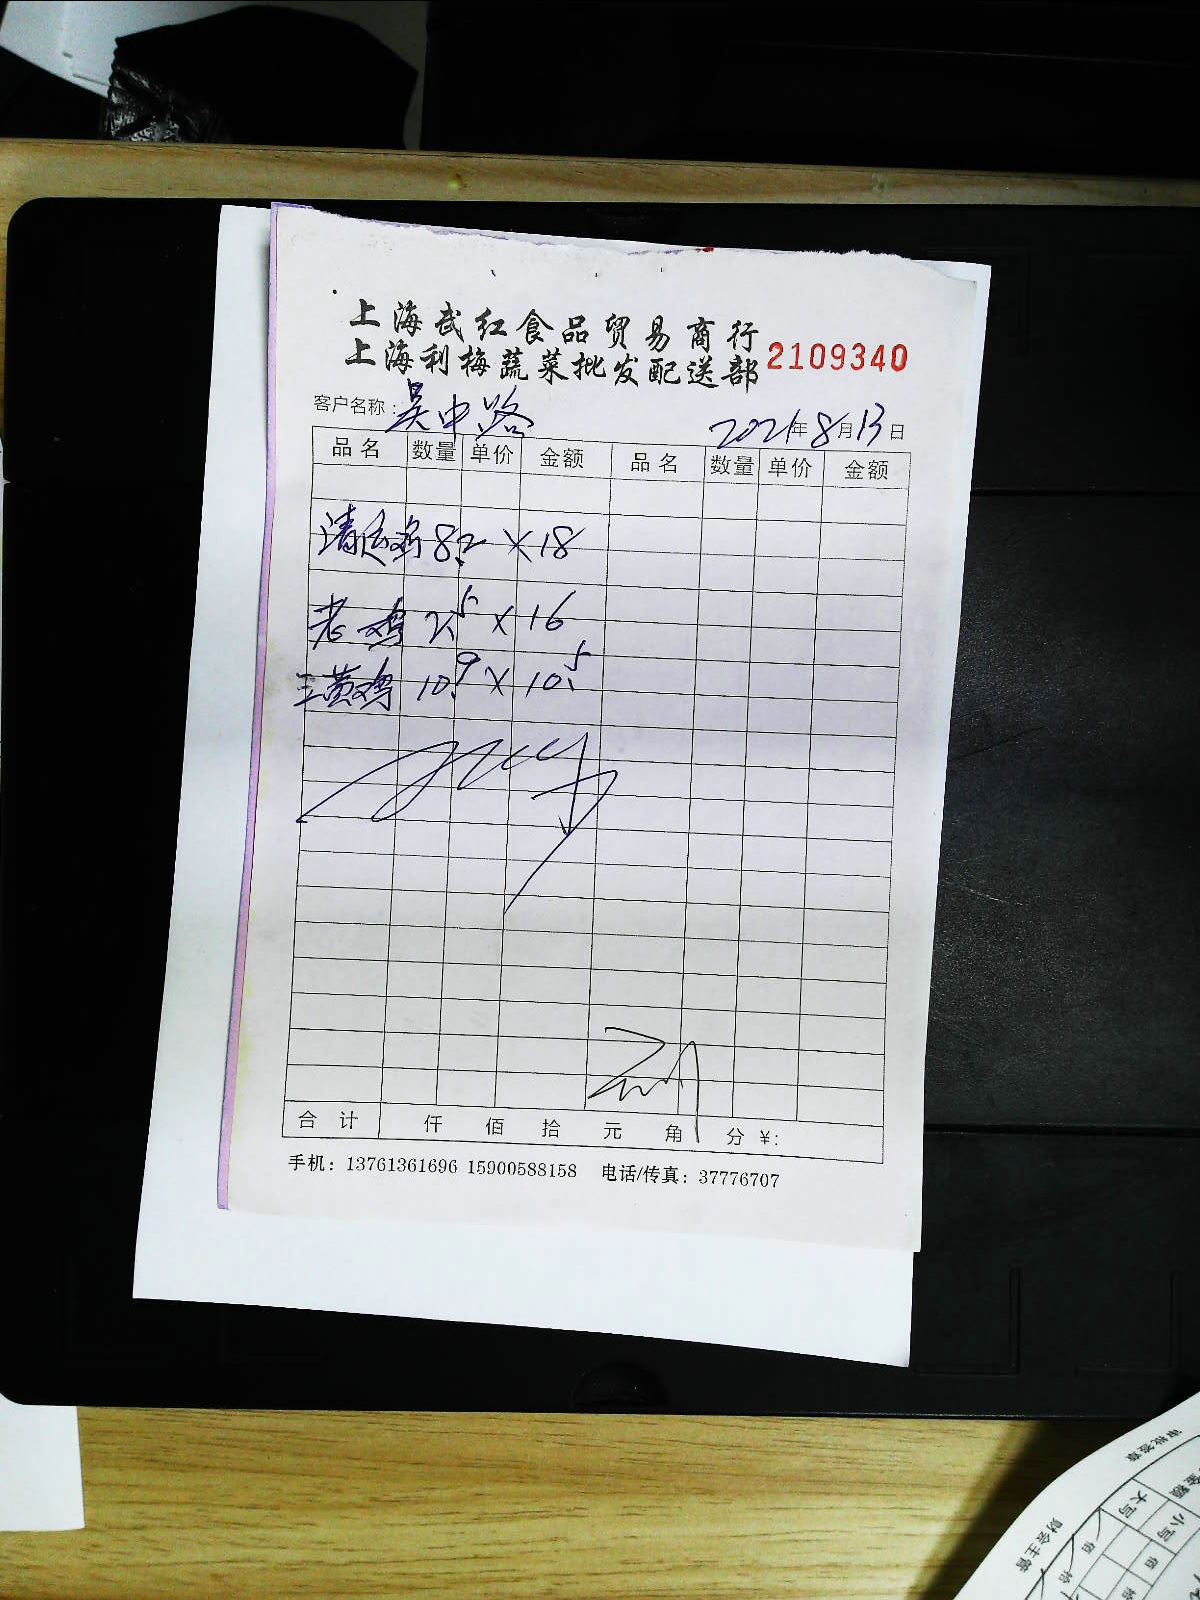 上海武红食品贸易商行
上海利梅蔬菜批发配送部 2109340
客户名称：吴中路 2021年8月13日
品名 数量 单价 金额 品名 数量 单价 金额
清远鸡 8.2 × 18
老鸡 2.5 × 16
三黄鸡 10.9 × 10.5
合计 仟 佰 拾 元 角 分 ¥:
手机：13761361696 15900588158 电话/传真：37776707
金额
大写
小写
佰
拾
佰
财会主管